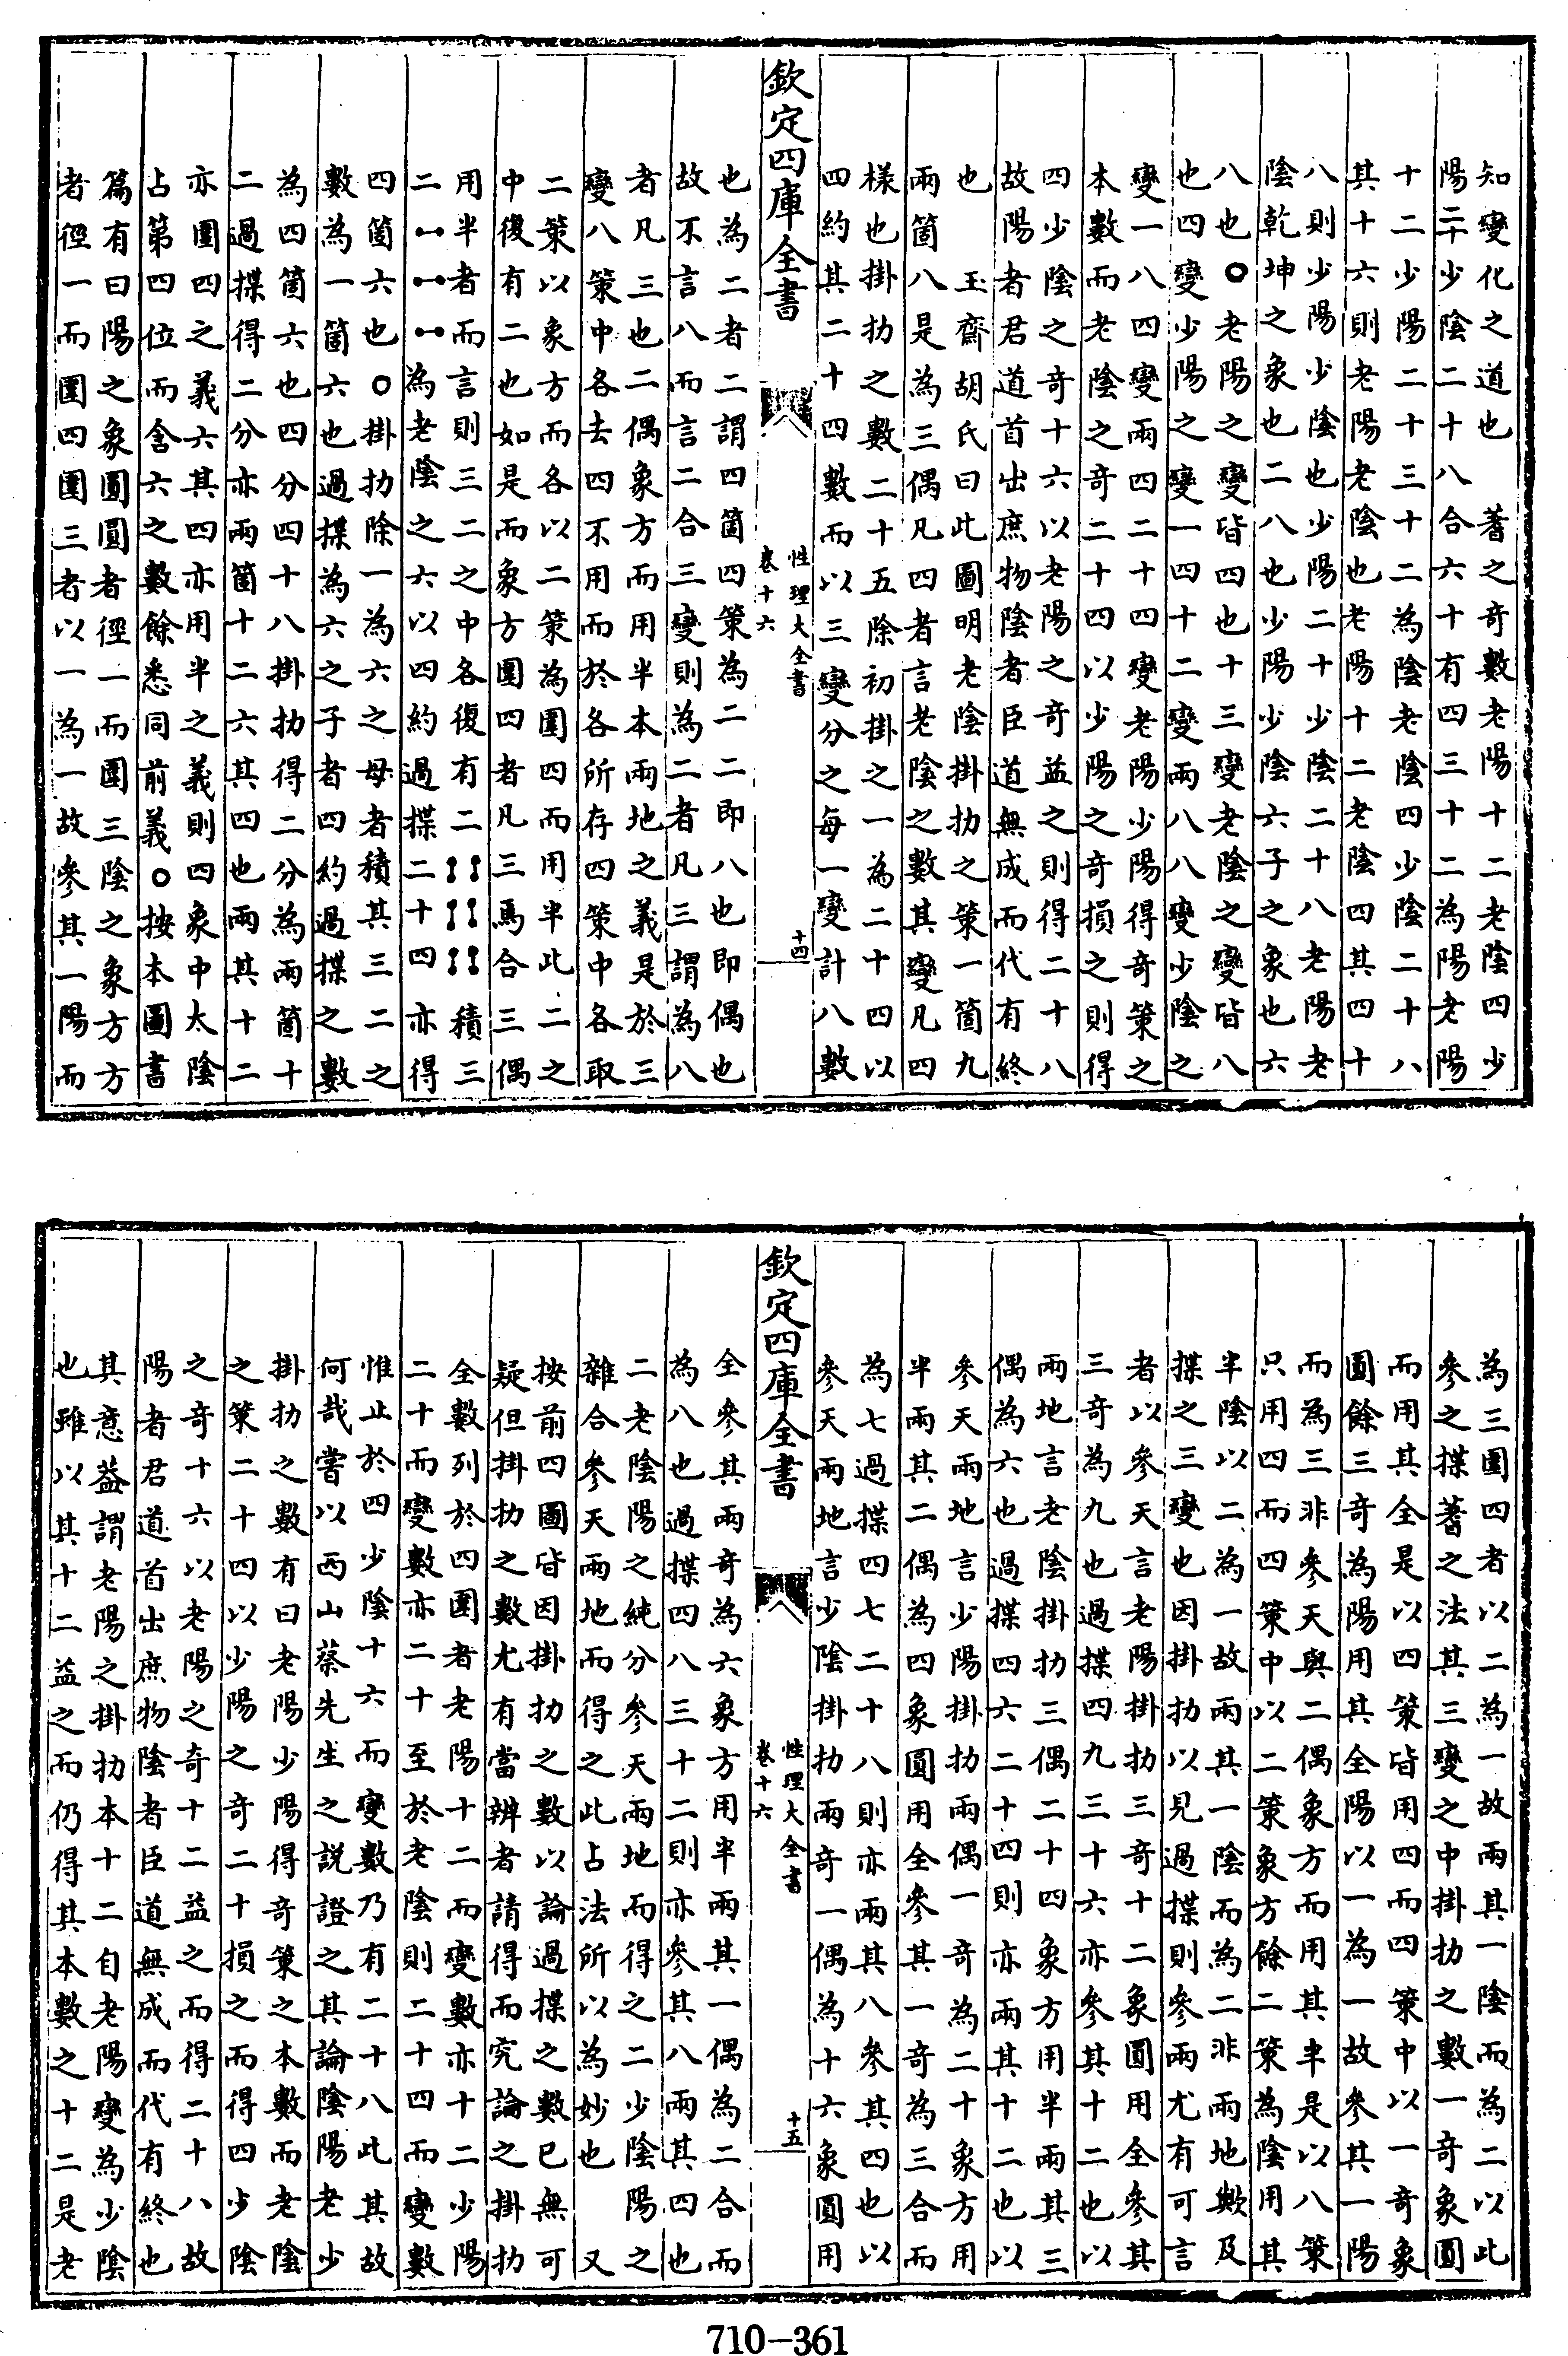 知變化之道也　蓍之奇數老陽十二老陰四少
陽二十少陰二十八合六十有四三十二為陽老陽
十二少陽二十三十二為陰老陰四少陰二十八
其十六則老陽老陰也老陽十二老陰四其四十
八則少陽少陰也少陽二十少陰二十八老陽老
陰乾坤之象也二八也少陽少陰六子之象也六
八也〇老陽之變皆四也十三變老陰之變皆八
也四變少陽之變一四十二變兩八八變少陰之
變一八四變兩四二十四變老陽少陽得奇策之
本數而老陰之奇二十四以少陽之奇損之則得
四少陰之奇十六以老陽之奇益之則得二十八
故陽者君道首出庶物陰者臣道無成而代有終
也　玉齋胡氏曰此圖明老陰掛扐之策一箇九
兩箇八是為三偶凡四者言老陰之數其變凡四
樣也掛扐之數二十五除初掛之一為二十四以
四約其二十四數而以三變分之每一變計八數
欽定四庫全書
性理大全書
卷十六
十四
也為二者二謂四箇四策為二二即八也即偶也
故不言八而言二合三變則為二者凡三謂為八
者凡三也二偶象方而用半本兩地之義是於三
變八策中各去四不用而於各所存四策中各取
二策以象方而各以二策為圍四而用半此二之
中復有二也如是而象方圍四者凡三焉合三偶
用半者而言則三二之中各復有二積三
二為老陰之六以四約過揲二十四亦得
四箇六也〇掛扐除一為六之母者積其三二之
數為一箇六也過揲為六之子者四約過揲之數
為四箇六也四分四十八掛扐得二分為兩箇十
二過揲得二分亦兩箇十二六其四也兩其十二
亦圍四之義六其四亦用半之義則四象中太陰
占第四位而含六之數餘悉同前義〇按本圖書
篇有曰陽之象圓圓者徑一而圍三陰之象方方
者徑一而圍四圍三者以一為一故參其一陽而
為三圍四者以二為一故兩其一陰而為二以此
參之揲蓍之法其三變之中掛扐之數一奇象圓
而用其全是以四策皆用四而四策中以一奇象
圓餘三奇為陽用其全陽以一為一故參其一陽
而為三非參天與二偶象方而用其半是以八策
只用四而四策中以二策象方餘二策為陰用其
半陰以二為一故兩其一陰而為二非兩地歟及
揲之三變也因掛扐以見過揲則參兩尤有可言
者以參天言老陽掛扐三奇十二象圓用全參其
三奇為九也過揲四九三十六亦參其十二也以
兩地言老陰掛扐三偶二十四象方用半兩其三
偶為六也過揲四六二十四則亦兩其十二也以
參天兩地言少陽掛扐兩偶一奇為二十象方用
半兩其二偶為四象圓用全參其一奇為三合而
為七過揲四七二十八則亦兩其八參其四也以
參天兩地言少陰掛扐兩奇一偶為十六象圓用
欽定四庫全書
性理大全書
卷十六
十五
全參其兩奇為六象方用半兩其一偶為二合而
為八也過揲四八三十二則亦參其八兩其四也
二老陰陽之純分參天兩地而得之二少陰陽之
雜合參天兩地而得之此占法所以為妙也　又
按前四圖皆因掛扐之數以論過揲之數已無可
疑但掛扐之數尤有當辨者請得而究論之掛扐
全數列於四圍者老陽十二而變數亦十二少陽
二十而變數亦二十至於老陰則二十四而變數
惟止於四少陰十六而變數乃有二十八此其故
何哉嘗以西山蔡先生之説證之其論陰陽老少
掛扐之數有曰老陽少陽得奇策之本數而老陰
之策二十四以少陽之奇二十損之而得四少陰
之奇十六以老陽之奇十二益之而得二十八故
陽者君道首出庶物陰者臣道無成而代有終也
其意葢謂老陽之掛扐本十二自老陽變為少陰
也雖以其十二益之而仍得其本數之十二是老
710-361